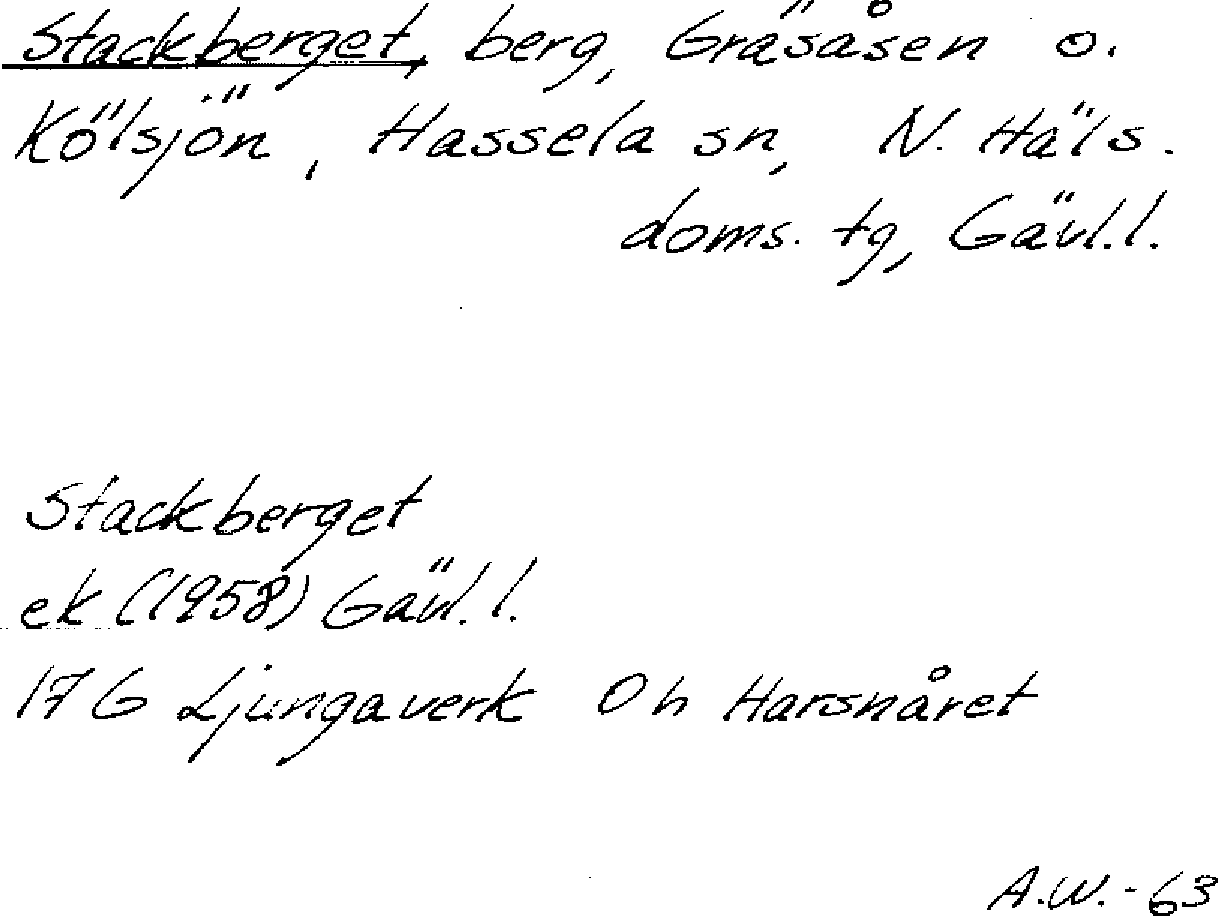 Stackberget, berg, Gräsåsen o.
Kölsjön, Hassela sn, N. Häls.
doms. tg, Gävl.l.
Stackberget
ek (1958) Gävl.l.
17 G Ljungaverk 0 h Harsnåret
A.W.-63